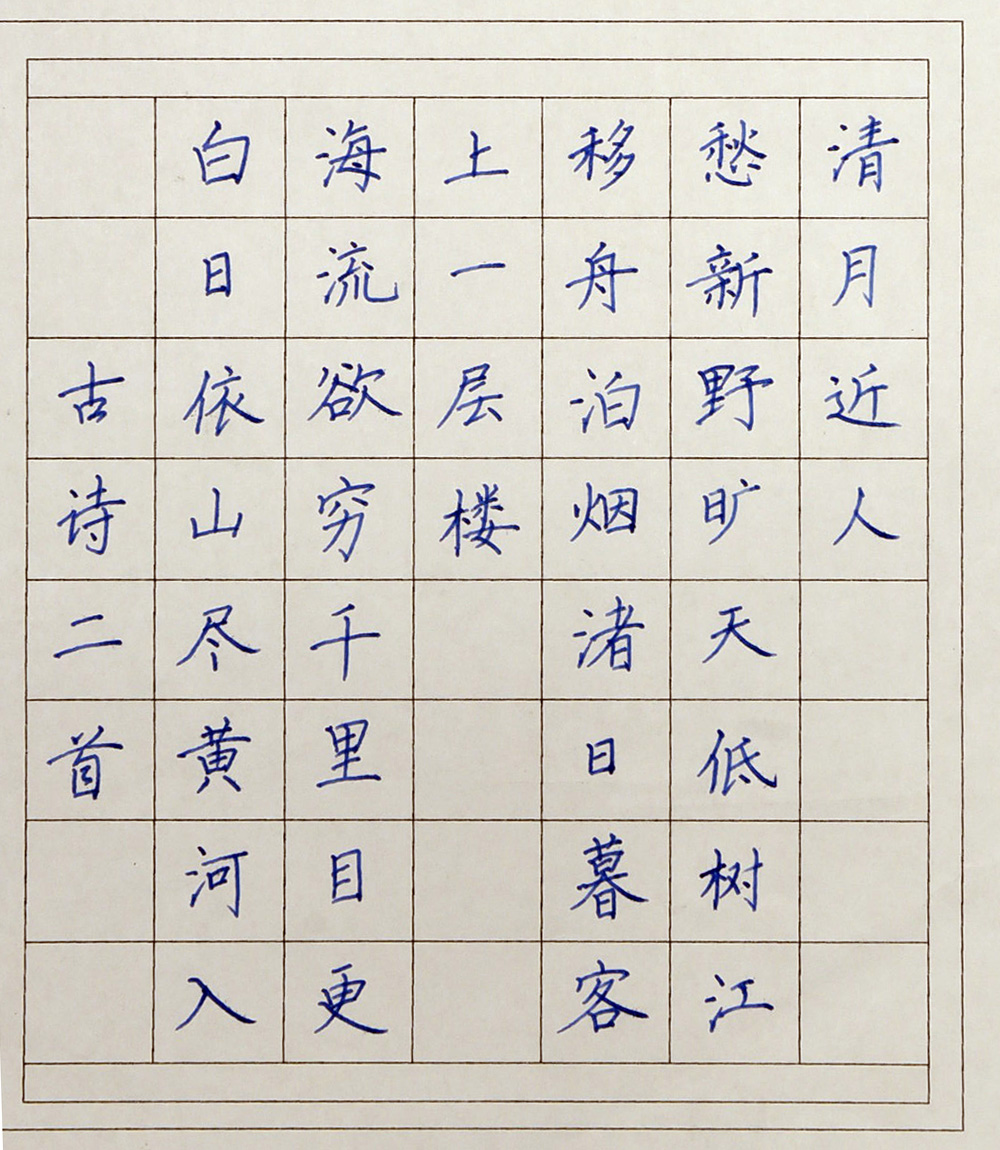 古诗二首
白日依山尽黄河入
海流欲穷千里目更
上一层楼
移舟泊烟渚日暮客
愁新野旷天低树江
清月近人